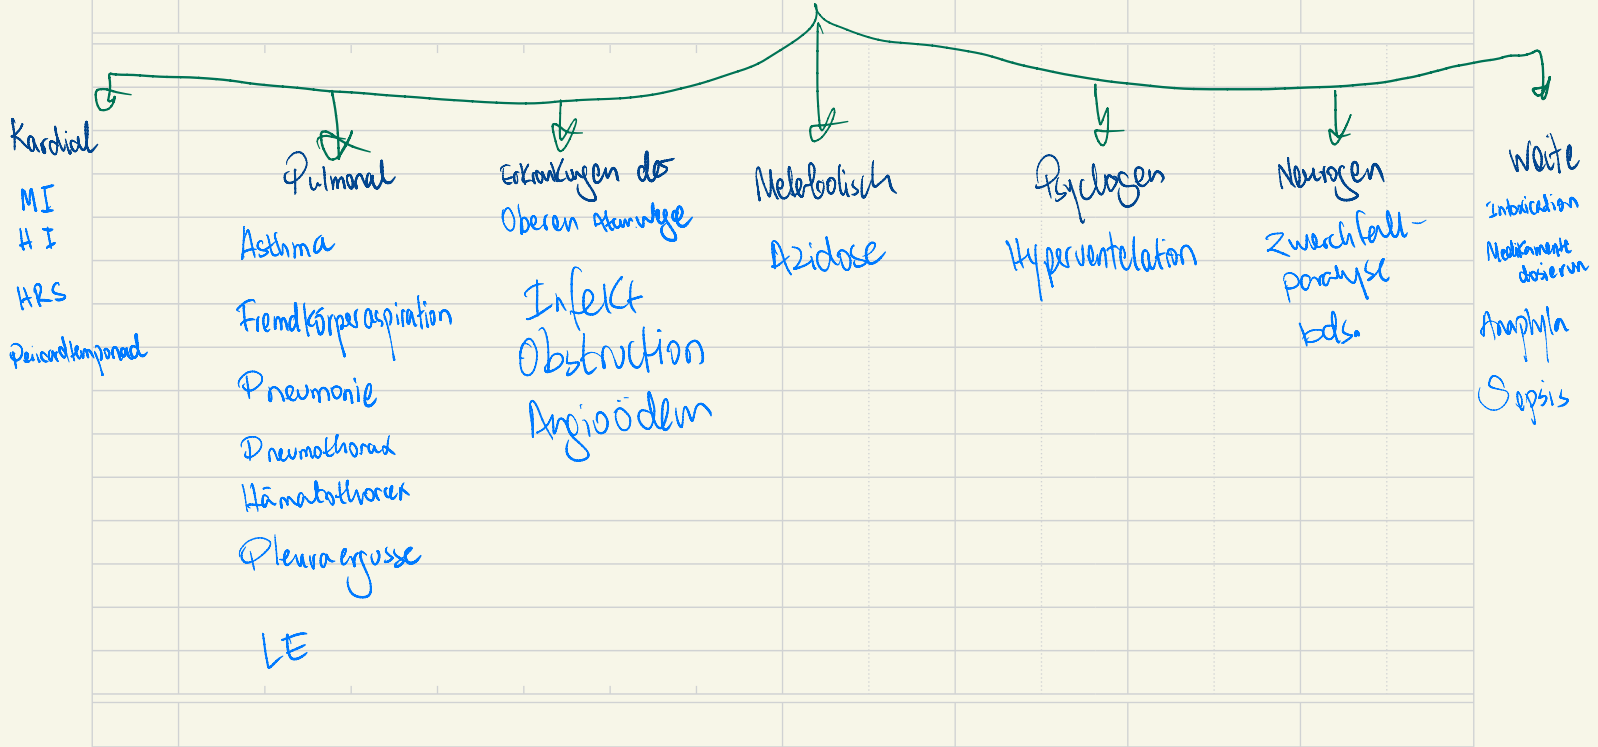 Kardial
MI
HI
HRS
Pulmonal
Asthma
Fremdkörperaspiration
Pneumonie
Pneumothorax
Hämatothorax
Pleuraergusse
LE
Erkrankungen des
Oberen Atemwege
Infekt
Obstruction
Angioödem
Metabolisch
Azidose
Psychogen
Hyperventelation
Neurogen
Zwerchfell-
paralyse
bds.
Intoxication
Medikamente
Sepsis